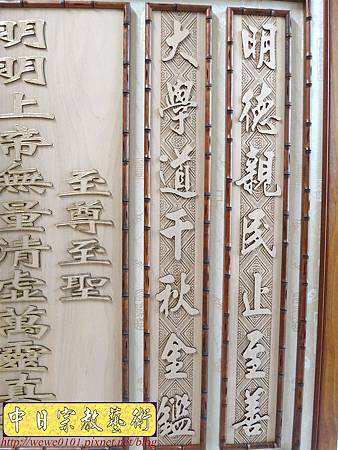 明德親民止至善
大學道千秋金鑑
至尊至聖
明明上帝無量清虛萬靈真
中日宗教藝術
http://wewe0101.pixnet.net/blog